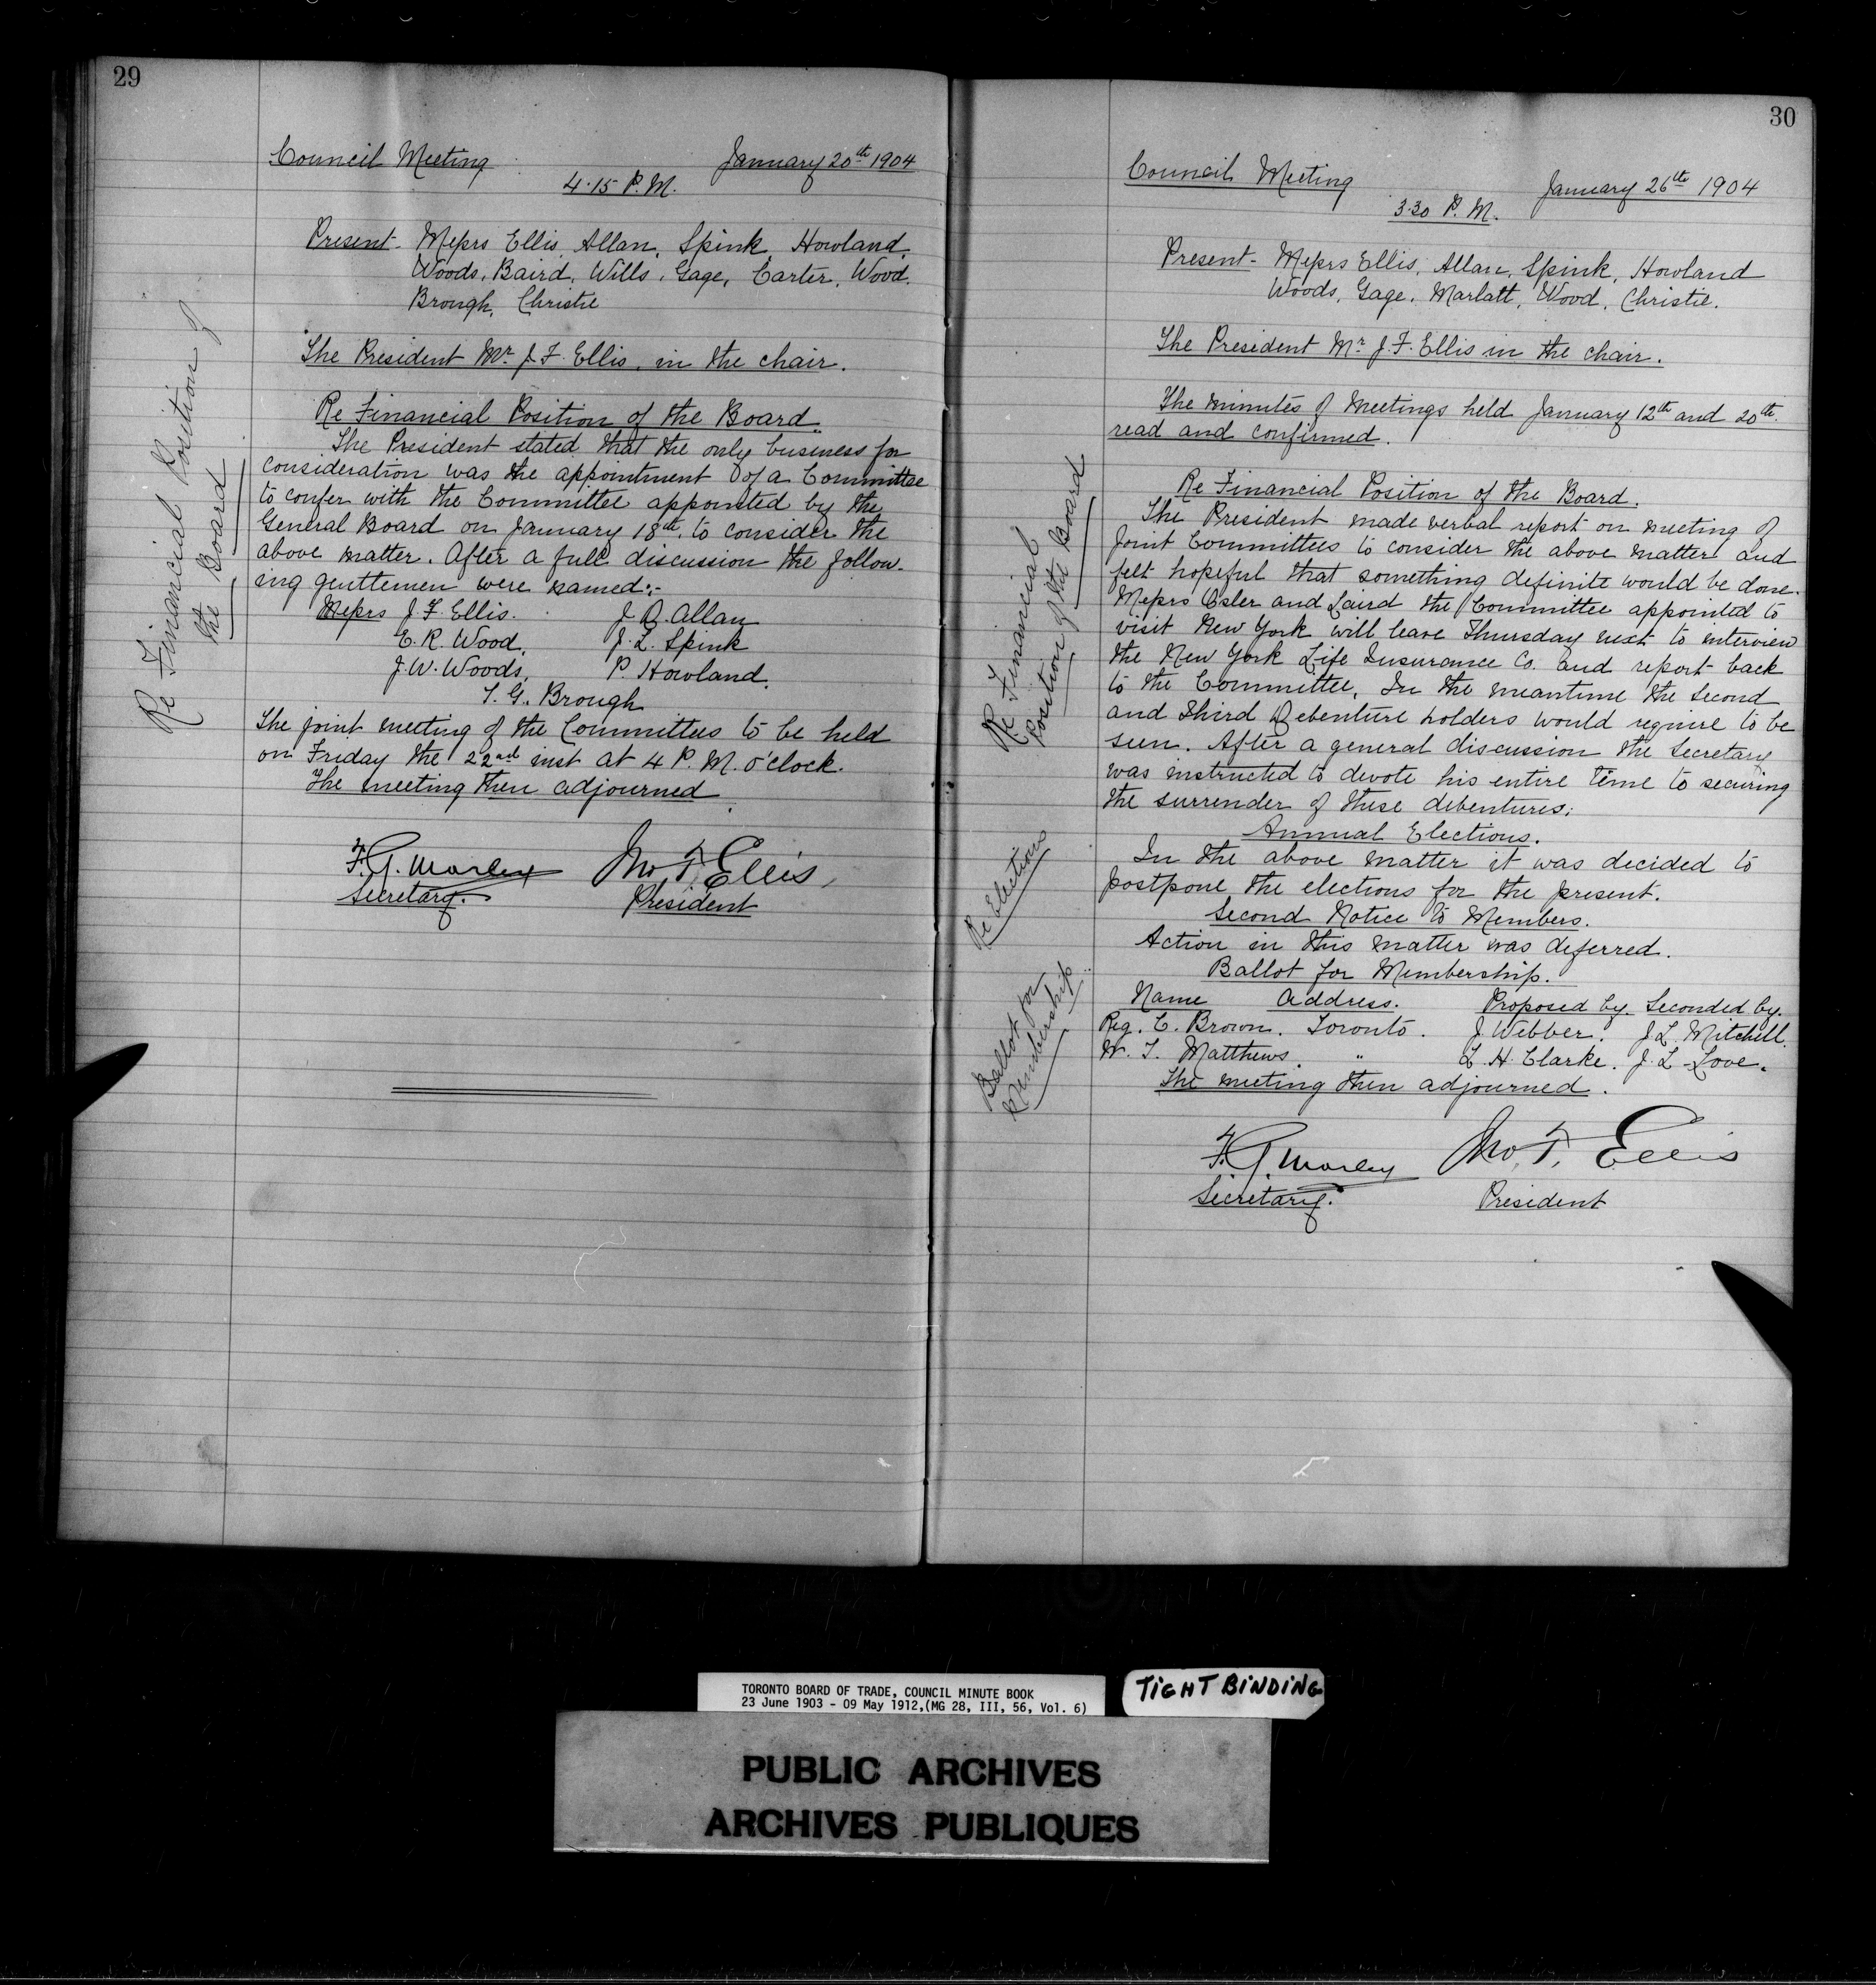 29
Council Meeting January 20th 1904
4.15 P.M.
Present - Messrs Ellis, Allan, Spink, Howland,
Woods, Baird, Wills, Gage, Carter, Wood,
Brough, Christie
The President Mr. J. F. Ellis, in the chair.
Re Financial Position of
the Board
Re Financial Position of the Board.
The President stated that the only business for
consideration was the appointment of a Committee
to confer with the Committee appointed by the
General Board on January 18th, to consider the
above matter. After a full discussion the follow-
ing gentlemen were named:-
Messrs J. F. Ellis. J. D. Allan
E. R. Wood, J. L. Spink
J. W. Woods, P. Howland,
T. G. Brough
The joint meeting of the Committees to be held
on Friday the 22nd inst at 4 P.M. o'clock.
The meeting then adjourned
F. G. Morley Jno. F. Ellis,
Secretary. President
30
Council Meeting January 26th 1904
3.30 P.M.
Present - Messrs Ellis, Allan, Spink, Howland
Woods, Gage, Marlatt, Wood, Christie.
The President Mr. J. F. Ellis in the chair.
The minutes of meetings held January 12th and 20th
read and confirmed.
Re Financial
Position of the Board
Re Financial Position of the Board.
The President made verbal report on meeting of
Joint Committees to consider the above matter and
felt hopeful that something definite would be done.
Messrs Osler and Laird the Committee appointed to
visit New York will leave Thursday next to interview
the New York Life Insurance Co. and report back
to the Committee. In the meantime the second
and third Debenture holders would require to be
seen. After a general discussion the Secretary
was instructed to devote his entire time to securing
the surrender of these debentures.
Re Elections
Annual Elections.
In the above matter it was decided to
postpone the elections for the present.
Second Notice to Members.
Action in this matter was deferred.
Ballot for
Membership
Ballot for Membership.
Name Address. Proposed by. Seconded by.
Reg. C. Brown. Toronto. J. Webber. J. L. Mitchell.
W. T. Matthews. " L. H. Clarke. J. L. Love.
The meeting then adjourned.
F. G. Morley Jno. F. Ellis
Secretary. President
TORONTO BOARD OF TRADE, COUNCIL MINUTE BOOK
23 June 1903 - 09 May 1912,(MG 28, III, 56, Vol. 6)
TIGHT BINDING
PUBLIC ARCHIVES
ARCHIVES PUBLIQUES